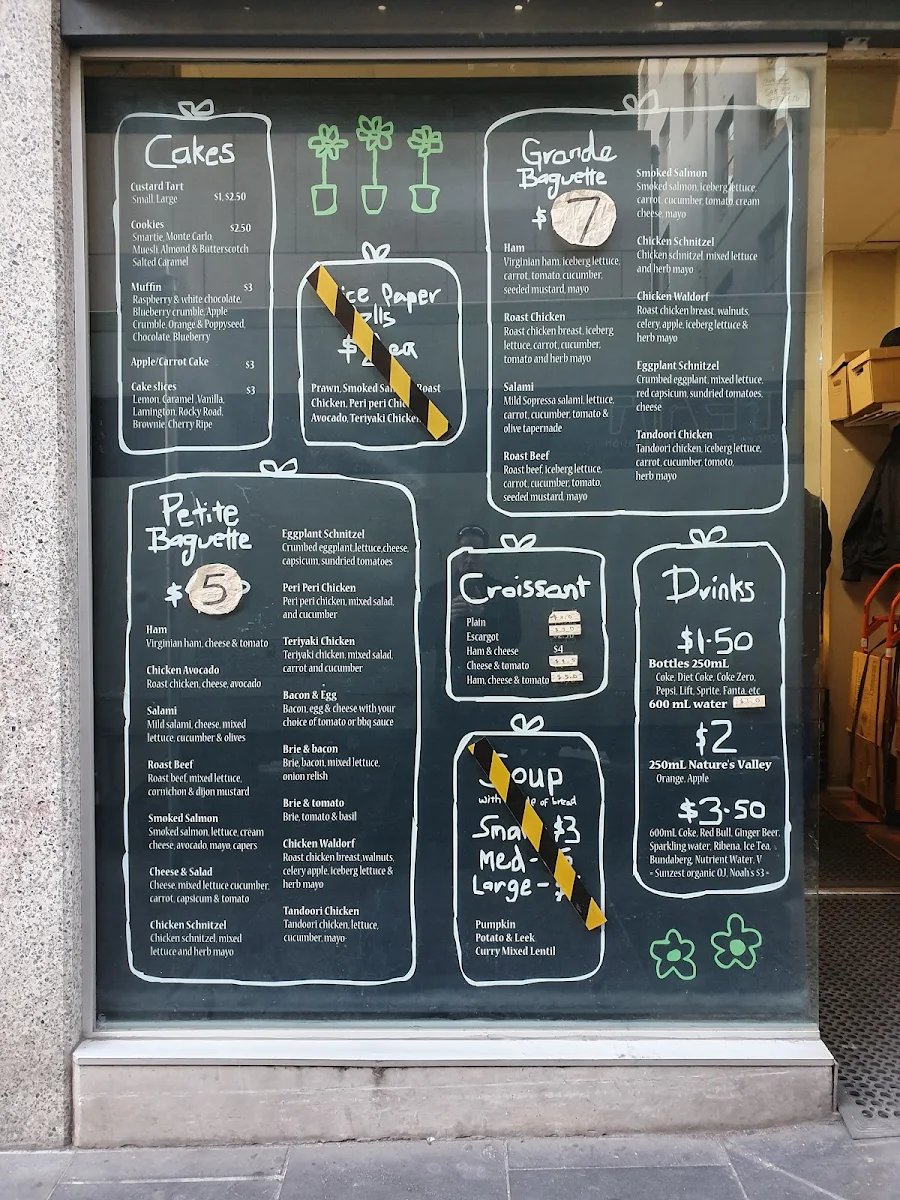 Cakes
Custard Tart
Small, Large $1, $2.50
Cookies $2.50
Smartie, Monte Carlo
Muesli, Almond & Butterscotch
Salted Caramel
Muffin $3
Raspberry & white chocolate,
Blueberry crumble, Apple
Crumble, Orange & Poppyseed,
Chocolate, Blueberry
Apple/Carrot Cake $3
Cake slices $3
Lemon, Caramel, Vanilla,
Lamington, Rocky Road,
Brownie, Cherry Ripe
ice Paper
lls
$ ea
Prawn, Smoked Roast
Chicken, Peri peri
Avocado, Teriyaki Chicken
Grande
Baguette
$ 7
Ham
Virginian ham, iceberg lettuce,
carrot, tomato, cucumber,
seeded mustard, mayo
Roast Chicken
Roast chicken breast, iceberg
lettuce, carrot, cucumber,
tomato and herb mayo
Salami
Mild Sopressa salami, lettuce,
carrot, cucumber, tomato &
olive tapernade
Roast Beef
Roast beef, iceberg lettuce,
carrot, cucumber, tomato,
seeded mustard, mayo
Smoked Salmon
Smoked salmon, iceberg lettuce,
carrot, cucumber, tomato, cream
cheese, mayo
Chicken Schnitzel
Chicken schnitzel, mixed lettuce
and herb mayo
Chicken Waldorf
Roast chicken breast, walnuts,
celery, apple, iceberg lettuce &
herb mayo
Eggplant Schnitzel
Crumbed eggplant, mixed lettuce,
red capsicum, sundried tomatoes,
cheese
Tandoori Chicken
Tandoori chicken, lettuce,
carrot, cucumber, tomoto,
herb mayo
Petite
Baguette
$ 5
Ham
Virginian ham, cheese & tomato
Chicken Avocado
Roast chicken, cheese, avocado
Salami
Mild salami, cheese, mixed
lettuce, cucumber & olives
Roast Beef
Roast beef, mixed lettuce,
cornichon & dijon mustard
Smoked Salmon
Smoked salmon, lettuce, cream
cheese, avocado, mayo, capers
Cheese & Salad
Cheese, mixed lettuce cucumber,
carrot, capsicum & tomato
Chicken Schnitzel
Chicken schnitzel, mixed
lettuce and herb mayo
Eggplant Schnitzel
Crumbed eggplant, lettuce, cheese,
capsicum, sundried tomatoes
Peri Peri Chicken
Peri peri chicken, mixed salad,
and cucumber
Teriyaki Chicken
Teriyaki chicken, mixed salad,
carrot and cucumber
Bacon & Egg
Bacon, egg & cheese with your
choice of tomato or bbq sauce
Brie & bacon
Brie, bacon, mixed lettuce,
onion relish
Brie & tomato
Brie, tomato & basil
Chicken Waldorf
Roast chicken breast, walnuts,
celery apple, iceberg lettuce &
herb mayo
Tandoori Chicken
Tandoori chicken, lettuce,
cucumber, mayo
Croissant
Plain
Escargot
Ham & cheese $4
Cheese & tomato
Ham, cheese & tomato
Soup
with of bread
Small $3
Med -
Large -
Pumpkin
Potato & Leek
Curry Mixed Lentil
Drinks
$1.50
Bottles 250mL
Coke, Diet Coke, Coke Zero,
Pepsi, Lift, Sprite, Fanta, etc
600 mL water
$2
250mL Nature's Valley
Orange, Apple
$3.50
600mL Coke, Red Bull, Ginger Beer,
Sparkling water, Ribena, Ice Tea,
Bundaberg, Nutrient Water, V
- Sunzest organic OJ, Noah's $3 -